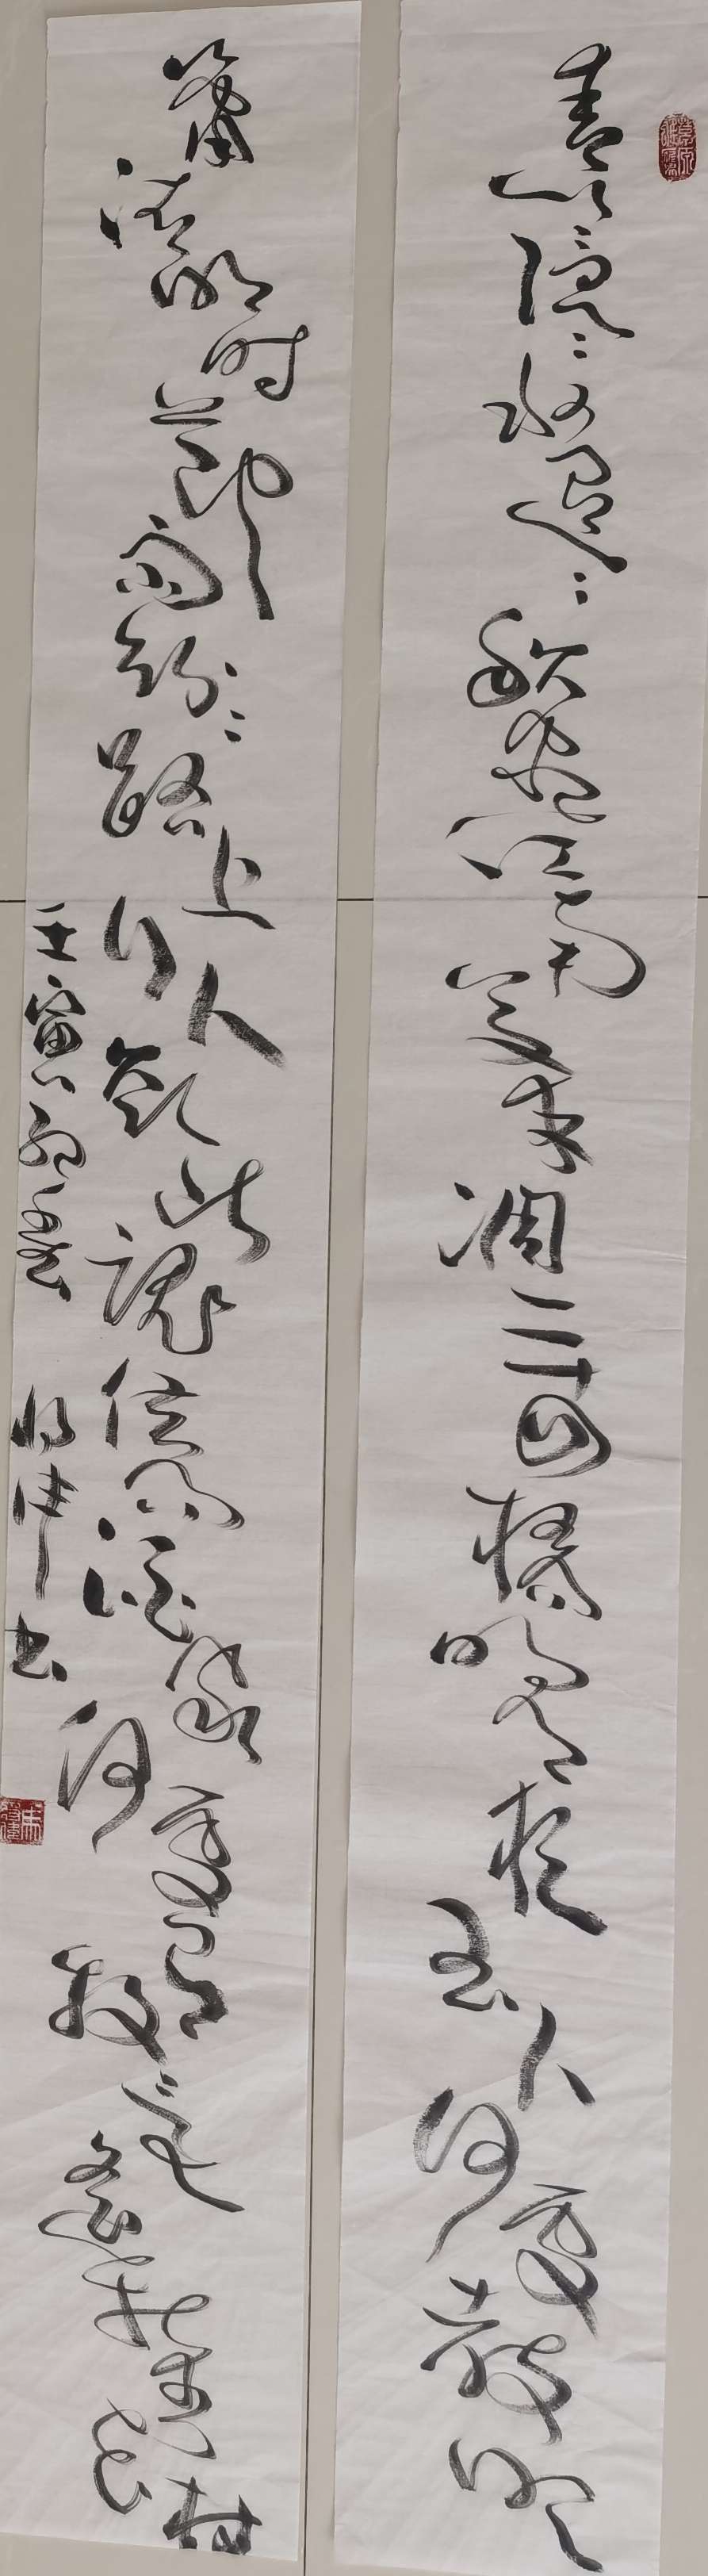 青山隐々水迢々秋尽江南草未凋二十四桥明月夜玉人何处教吹
箫清明时节雨纷々路上行人欲断魂借问酒家何处有牧童遥指杏花村
壬寅 书